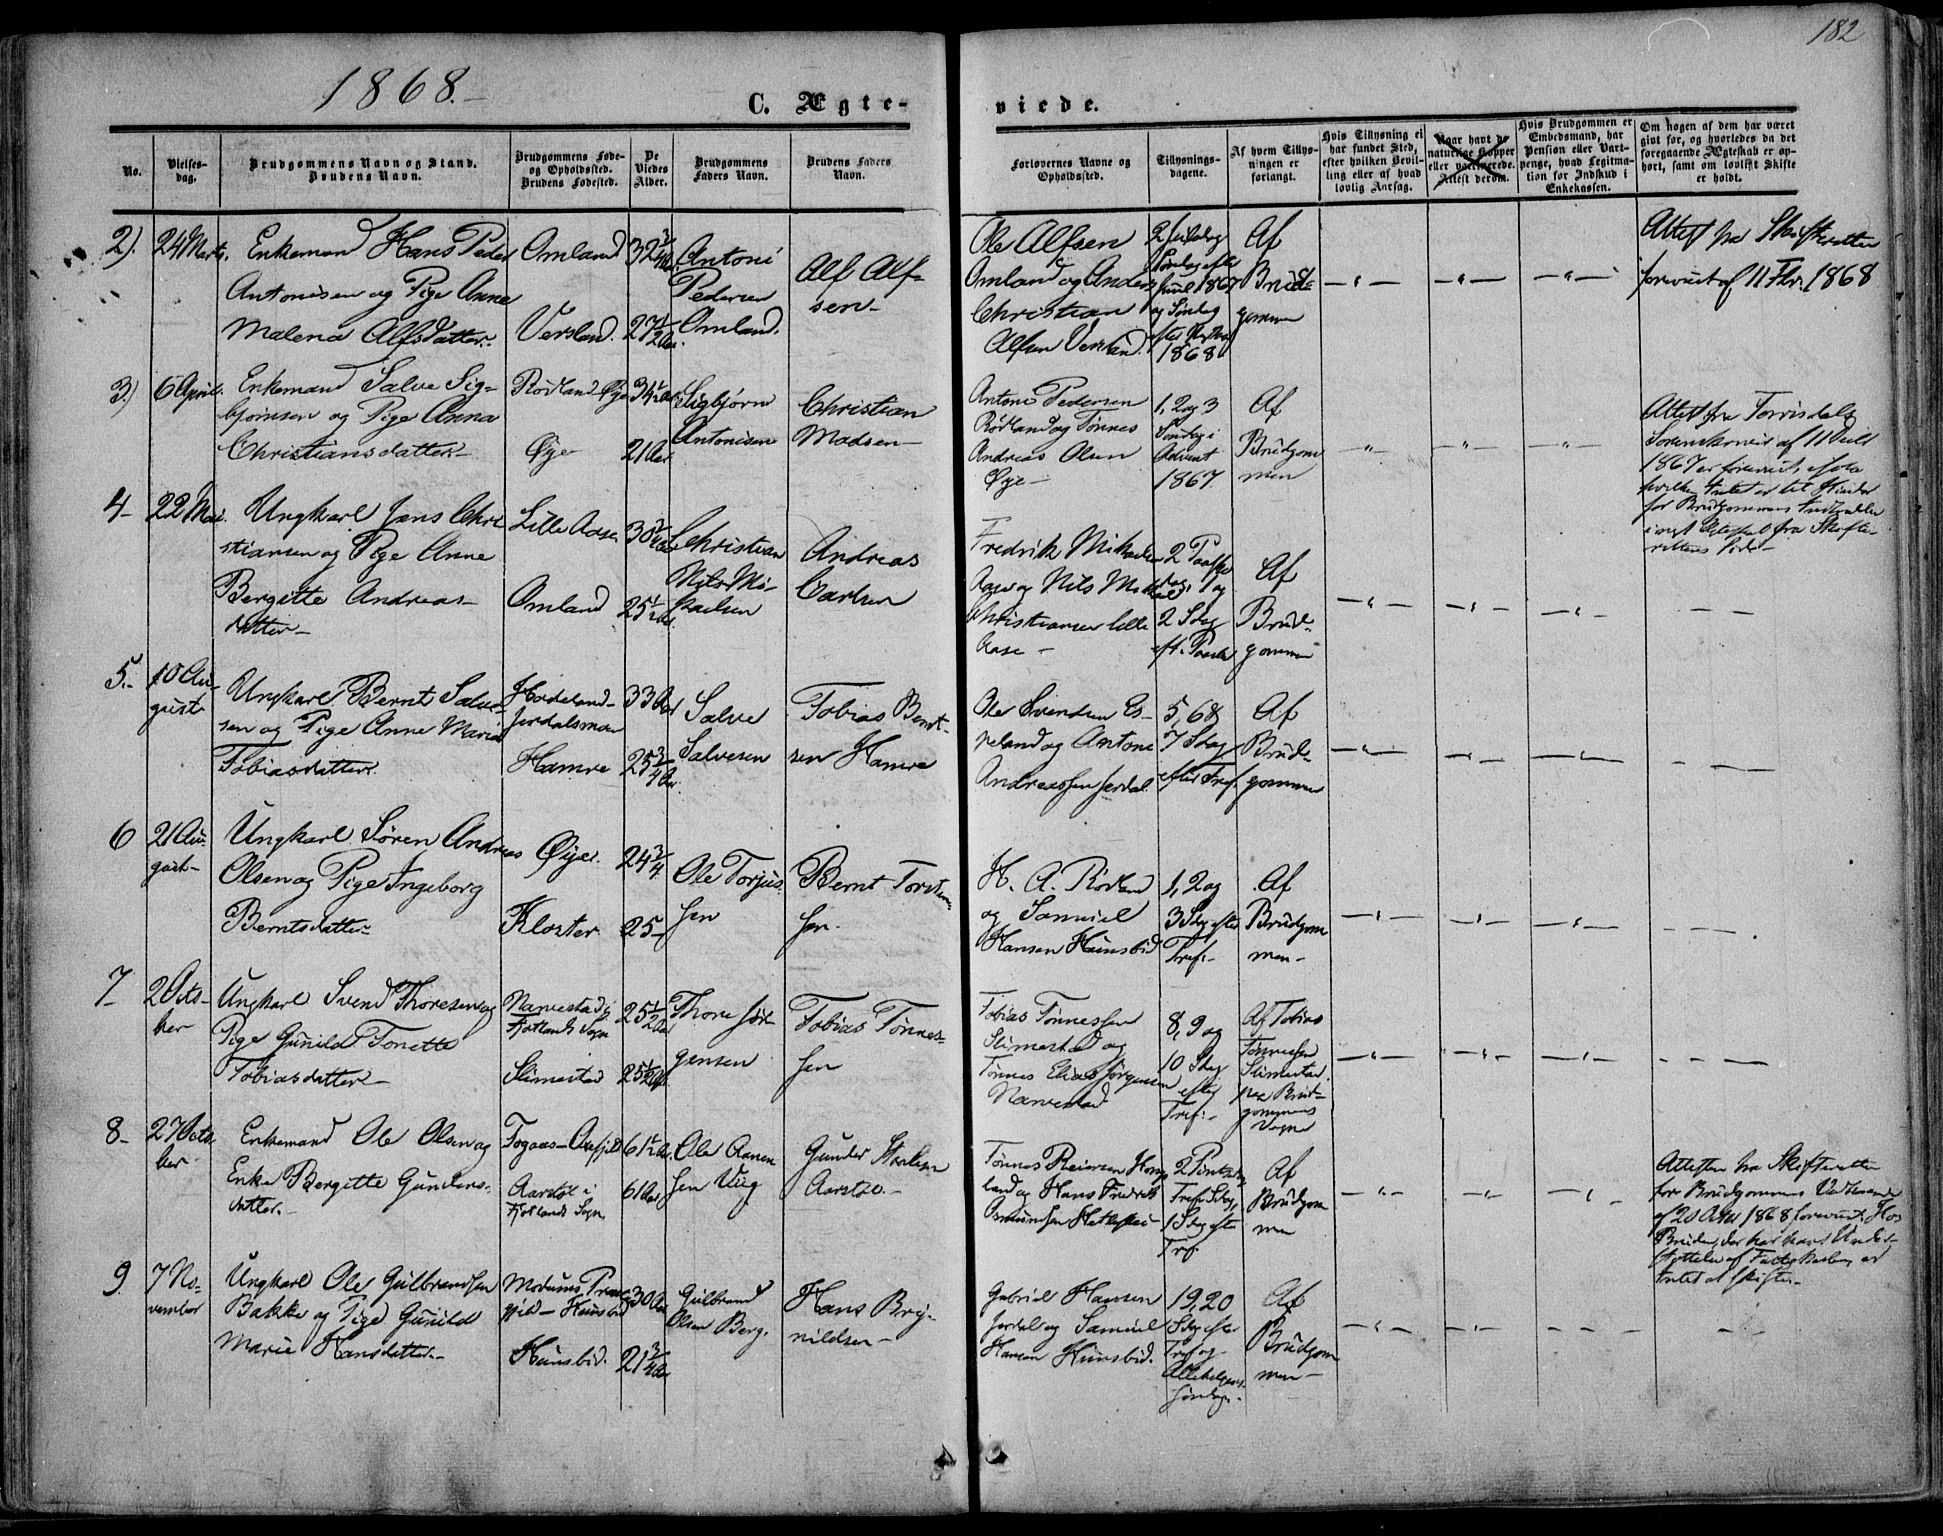 182
1868.-
C. Ægte-
viede.
No.
Vielses-
dag.
Brudgommens Navn og Stand.
Brudens Navn.
Brudgommens Føde-
og Opholdssted.
Brudens Fødested.
De
Viedes
Alder.
Brudgommens
Faders Navn.
Brudens Faders
Navn.
Forlovernes Navne og
Opholdssted.
Tillysnings-
dagene.
Af hvem Tillys-
ningen er
forlangt.
Hvis Tillysning ei
har fundet Sted,
efter hvilken Bevil-
ling eller af hvad
lovlig Aarsag.
Naar havt de
naturlige Kopper
eller vaccinerede.
Attest derom.
Hvis Brudgommen er
Embedsmand, har
Pension eller Vart-
penge, hvad Legitima-
tion for Indskud i
Enkekassen.
Om nogen af dem har været
gift før, og hvorledes da det
foregaaende Ægteskab er op-
hørt, samt om lovligt Skifte
er holdt.
2).
24 Marts.
Enkemand Hans Peder
Antonisen og Pige Anne
Malena Alfsdatter.
Omland
Versland.
32 3/4 Aar.
27 1/2 Aar.
Antoni
Pedersen
Omland.
Alf Alf-
sen-
Ole Alfsen
Omland og Anders
Christian
Alfsen Versland.
Søndag efter
Juul 1867
og Søndag
1868
Af
Brud-
gommen
Attest fra Skifteretten
forevist af 11 Fbr. 1868
3)
6 April.
Enkemand Salve Sig-
bjørnsen og Pige Anna
Christiansdatter-
Rødland Øye
Øye
34 1/2 Aar
21 Aar
Sigbjørn
Antonisen
Christian
Madsen-
Antoni Pedersen
Rødland og Tønnes
Andreas Olsen
Øye-
1, 2 og 3
Søndag i
Advent
1867
Af
Brudgom
men
Attest fra Torrisdals
Sorenskriveri af 11 Juli
1867 er forevist, ifølge
hvilken Intet er til Hinder
for Brudgommens Indtrædelse
i nyt Ægteskab fra Skifte-
rettens Side-
4-
22 Mai.
Ungkarl Jens Chri
stiansen og Pige Anne
Bergitte Andreas-
datter-
Lille Aase
Omland
30 1/2 Aar
25 1/2 Aar.
Christian
Nils Mi-
kaelsen
Andreas
Carlsen
Fredrik Mikaelsen
Aase og Nils Mikael
Christiansen lille
Aase-
2 Paaske
dag, 1 og
2 Sdag
eft. Paaske
Af
Brud-
gommen
5.-
10 Au-
gust
Ungkarl Bernt Salve
sen og Pige Anne Marie
Tobiasdatter.
Jerdalsmoen
Hamre
33 Aar
25 3/4 Aar.
Salve
Salvesen
Tobias Bernt-
sen Hamre
Ole Svendsen Es-
peland og Antoni
Andreassen Jerdal.
5, 6 &
7 Sdag
efter Tref.
Af
Brud-
gommen
6
21 Au-
gust-
Ungkarl Søren Andreas
Olsen og Pige Ingeborg
Berntsdatter-
Øye.
Kloster
24 3/4.
25-
Ole Torjus-
sen
Bernt Torsten
sen-
H. A. Rødland
og Samuel
Hansen Hunsbid
1, 2 og
3 Sdag efter
Tref.-
Af
Brudgom
men-
7-
2 Octo-
ber
Ungkarl Svend Thoresen og
Pige Gunild Tonette
Tobiasdatter-
Narvestad i
Fjotlands Sogn
Slimestad
25 1/2 Aar
25 1/2 Aar.
Thore Jør-
gensen
Tobias Tønnes-
sen
Tobias Tønnessen
Slimestad og
Tønnes Elias Jørgensen
Narvestad
8, 9 og
10 Sdag
efter
Tref.-
Af Tobias
Tønnessen
Slimestad
paa Brud-
gommens
Vegne
8-
27 Octo
ber
Enkemand Ole Olsen og
Enke Bergitte Gunders-
datter.-
Aarstøl i
Fjotlands Sogn
61 1/2 Aar.
61 Aar
Ole Aanen
sen
Gunder
Tønnes Reiersen
land og Hans Fredrik
2 Pintsedag
Tref. Sdag,
1 Sdag efter
Tref.
Af
Brudgom
men
Attester fra Skifteretten
for Brudgommens Vedkommende
af 1868 forevist, Hos
Bruden, der har havt Under-
støttelse af Fattigkassen, er
Intet at skifte.-
9.
7 No-
vember
Ungkarl Ole Gulbrandsen
Bakke og Pige Gunild
Marie Hansdatter.-
Modums Præste-
gjeld- Hunsbid
Hunsbid.
30 Aar
21 3/4 Aar
Gulbrand
Olsen Berg.
Hans Bry-
nildsen-
Gabriel Hansen
Jerdal og Samuel
Hansen Hunsbid.
19, 20
Sdag efter
Tref og
Allehelgens
Søndag.
Af
Brudgom
men-